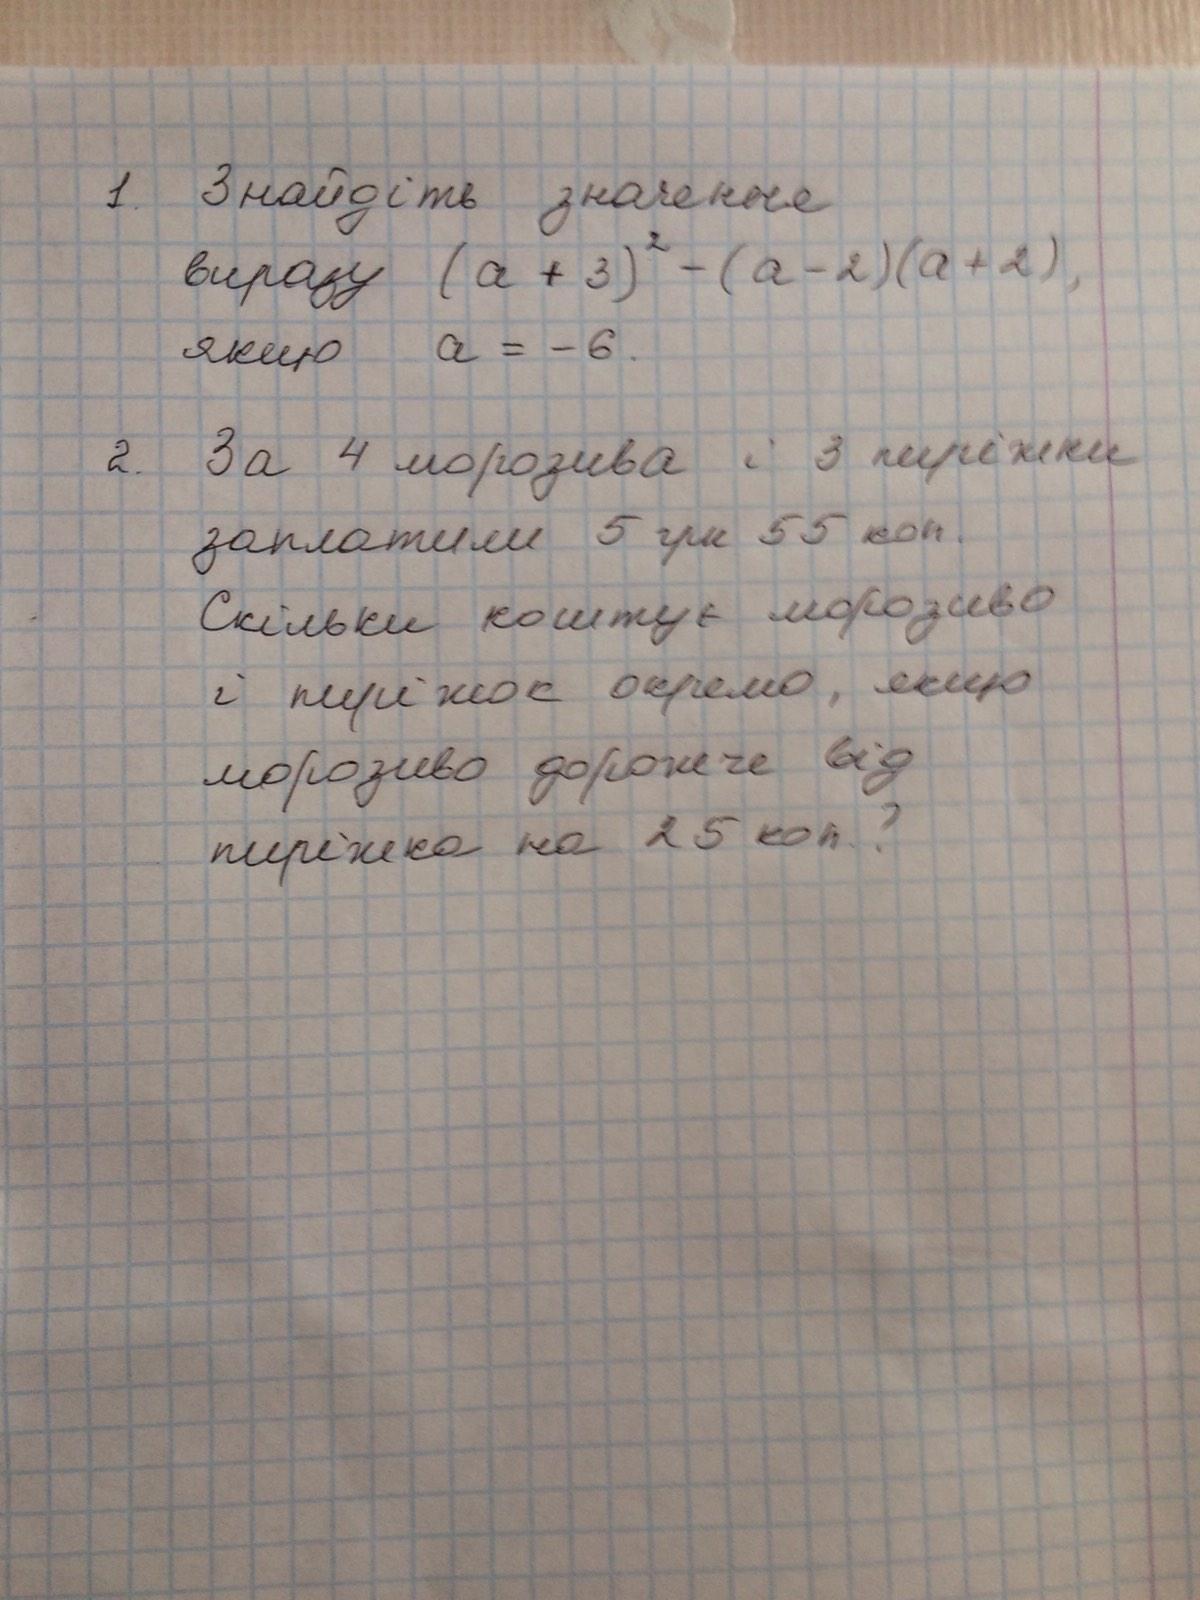 1. Знайдіть значення
виразу (a + 3)² - (a - 2)(a + 2),
якщо a = -6.
2. За 4 морозива і 3 пиріжки
заплатили 5 грн 55 коп.
Скільки коштує морозиво
і пиріжок окремо, якщо
морозиво дорожче від
пиріжка на 25 коп.?